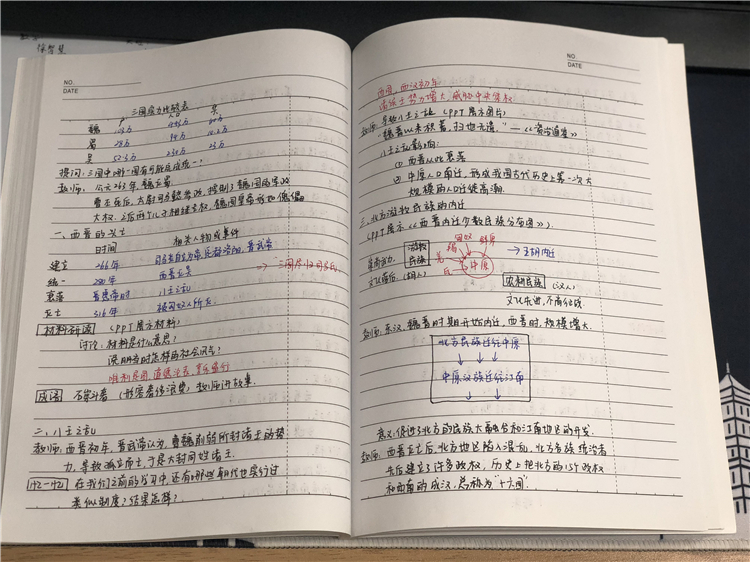 保智慧
NO.
DATE
三国实力比较表
户 人口 兵
魏 103万 443万 60万
蜀 28万 94万 10.2万
吴 52.3万 230万 23万
提问:三国中哪一国有可能完成统一?
教师:公元263年,魏灭蜀
曹丕死后,大臣司马懿发动政变,控制了魏国的军政
大权,之后两个儿子相继专权,魏国皇帝形如傀儡
一、西晋的兴亡
时间 相关人物或事件
建立 266年 司马炎自立为帝,定都洛阳,晋武帝
统一 280年 西晋灭吴 → "三国尽归司马氏"
衰落 晋惠帝时 八王之乱
灭亡 316年 被匈奴人所灭
材料研读 (PPT展示材料)
讨论:材料是什么意思?
说明当时怎样的社会风气?
成语 石崇斗奢 (形容奢侈浪费) 教师讲故事.
二、八王之乱
教师:西晋初年,晋武帝认为,曹魏削弱所封诸王的势
力,导致孤立而亡,于是大封同姓诸王.
忆一忆 在我们之前的学习中,还有哪些朝代也实行过
类似制度?结果怎样?
NO.
DATE
西周、西汉初年
诸侯王势力增大,威胁中央皇权
教师:导致八王之乱 (PPT展示图片)
"魏晋以来积蓄,扫地无遗." —《资治通鉴》
八王之乱影响:
① 西晋从此衰落
② 中原人口南迁,形成我国古代历史上第一次大
规模的人口迁徙高潮.
三、北方游牧民族的内迁
(PPT展示《西晋内迁少数民族分布图》):
游牧民族
(胡人)
文化落后.
匈奴
鲜卑
羯
羌
氐
中原
→ 五胡内迁
农耕民族 (汉人)
文化先进,不商征战.
教师:东汉、魏晋时期开始内迁,西晋时,规模增大.
北方民族迁往中原
↓ ↓ ↓
中原汉族迁往江南
↓ ↓ ↓
意义:促进了北方的民族大融合和江南地区的开发.
教师:西晋灭亡后,北方地区陷入混乱,北方各族统治者
先后建立了许多政权,历史上把北方的15个政权
和西南的成汉,总称为"十六国".